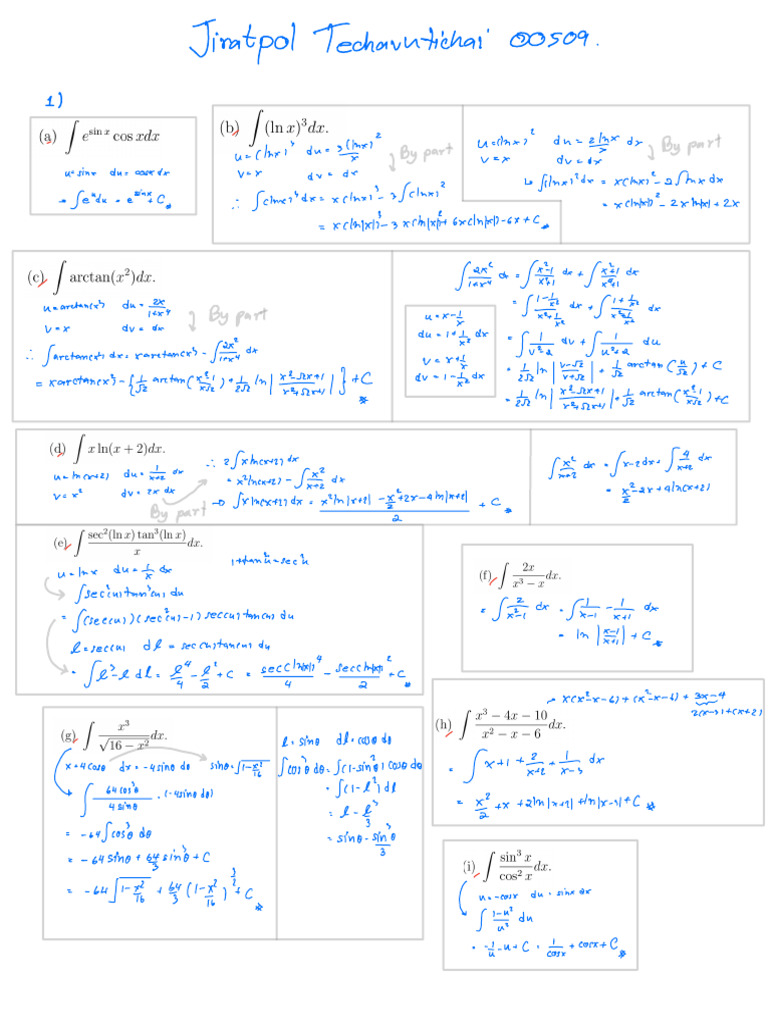 Jiratpol Techavutichai 00509.
1)
(a) ∫ e^{sin x} cos x dx
u = sin x  du = cos x dx
→ ∫ e^u du = e^{sin x} + C
(b) ∫ (ln x)^3 dx.
u = (ln x)^3  du = 3(ln x)^2/x
v = x  dv = dx
By part
∴ ∫ (ln x)^3 dx = x(ln x)^3 - 3∫(ln x)^2
= x(ln|x|)^3 - 3x(ln|x|)^2 + 6x(ln|x|) - 6x + C
u = (ln x)^2  du = 2 ln x/x dx
v = x  dv = dx
By part
↳ ∫ (ln x)^2 dx = x(ln x)^2 - 2∫ ln x dx
= x(ln|x|)^2 - 2x ln|x| + 2x
(c) ∫ arctan(x^2) dx.
u = arctan(x^2)  du = 2x/(1+x^4)
v = x  dv = dx
By part
∴ ∫ arctan(x^2) dx = x arctan(x^2) - ∫ 2x^2/(1+x^4) dx
= x arctan(x^2) - {1/√2 arctan((x^2-1)/(x√2)) + 1/(2√2) ln|(x^2-√2x+1)/(x^2+√2x+1)|} + C
∫ 2x^2/(1+x^4) dx = ∫ (x^2-1)/(x^4+1) dx + ∫ (x^2+1)/(x^4+1) dx
= ∫ (1-1/x^2)/(x^2+1/x^2) dx + ∫ (1+1/x^2)/(x^2+1/x^2) dx
= ∫ 1/(v^2-2) dv + ∫ 1/(u^2+2) du
= 1/(2√2) ln|(v-√2)/(v+√2)| + 1/√2 arctan(u/√2) + C
= 1/(2√2) ln|(x^2-√2x+1)/(x^2+√2x+1)| + 1/√2 arctan((x^2-1)/(x√2)) + C
u = x - 1/x
du = 1 + 1/x^2 dx
v = x + 1/x
dv = 1 - 1/x^2 dx
(d) ∫ x ln(x + 2) dx.
u = ln(x+2)  du = 1/(x+2) dx
v = x^2  dv = 2x dx
By part
∴ 2∫ x ln(x+2) dx
= x^2 ln(x+2) - ∫ x^2/(x+2) dx
→ ∫ x ln(x+2) dx = (x^2 ln|x+2| - x^2/2 + 2x - 4 ln|x+2|)/2 + C
∫ x^2/(x+2) dx = ∫ x-2 dx + ∫ 4/(x+2) dx
= x^2/2 - 2x + 4 ln(x+2)
(e) ∫ sec^2(ln x) tan^3(ln x)/x dx.
u = ln x  du = 1/x dx
1 + tan^2 u = sec^2 u
∫ sec^2(u) tan^3(u) du
= ∫ (sec(u))(sec^2(u)-1) sec(u) tan(u) du
l = sec(u)  dl = sec(u) tan(u) du
= ∫ l^3 - l dl = l^4/4 - l^2/2 + C = sec(ln|x|)^4/4 - sec(ln|x|)^2/2 + C
(f) ∫ 2x/(x^3 - x) dx.
= ∫ 2/(x^2-1) dx = ∫ 1/(x-1) - 1/(x+1) dx
= ln|(x-1)/(x+1)| + C
(g) ∫ x^3/√(16 - x^2) dx.
x = 4cosθ  dx = -4sinθ dθ  sinθ = √(1-x^2/16)
∫ 64cos^3θ/(4sinθ) · (-4sinθ dθ)
= -64∫cos^3θ dθ
= -64sinθ + 64/3 sin^3θ + C
= -64√(1-x^2/16) + 64/3 (1-x^2/16)^{3/2} + C
l = sinθ  dl = cosθ dθ
∫cos^3θ dθ = ∫(1-sin^2θ) cosθ dθ
= ∫(1-l^2) dl
= l - l^3/3
= sinθ - sin^3θ/3
→ x(x^2-x-6) + (x^2-x-6) + 3x-4
2(x-3)+(x+2)
(h) ∫ (x^3 - 4x - 10)/(x^2 - x - 6) dx.
= ∫ x+1 + 2/(x+2) + 1/(x-3) dx
= x^2/2 + x + 2ln|x+2| + ln|x-3| + C
(i) ∫ sin^3 x/cos^2 x dx.
u = -cos x  du = sin x dx
∫ (1-u^2)/u^2 du
= -1/u - u + C = 1/cos x + cos x + C